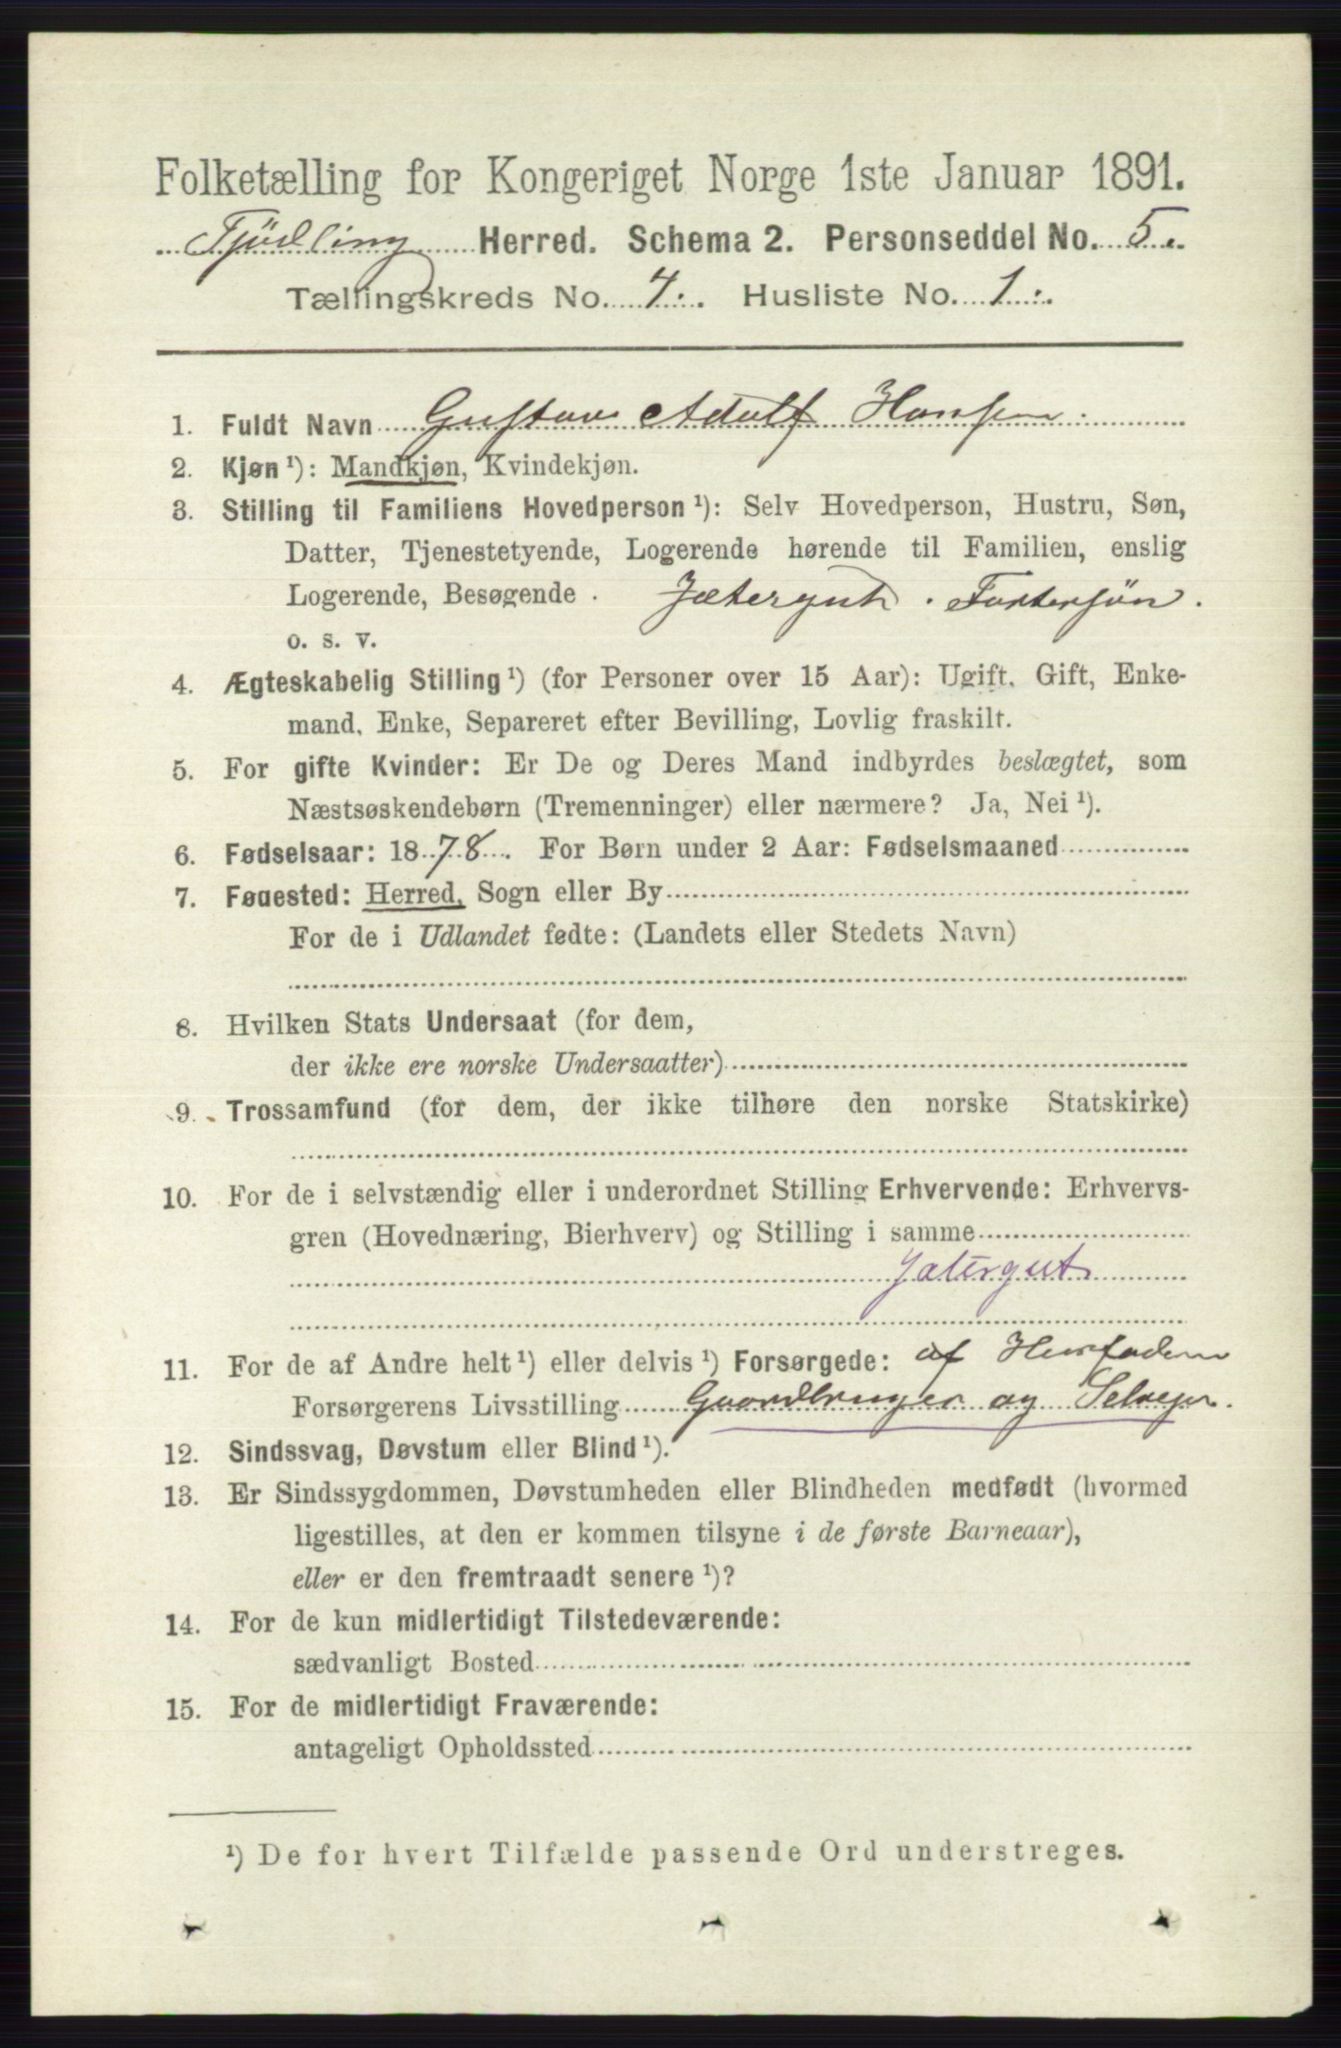 Folketælling for Kongeriget Norge 1ste Januar 1891.
Tjødling Herred. Schema 2. Personseddel No. 5.
Tællingskreds No. 4. Husliste No. 1.
1. Fuldt Navn Gustav Adolf Hansen
2. Kjøn ¹): Mandkjøn, Kvindekjøn.
3. Stilling til Familiens Hovedperson ¹): Selv Hovedperson, Hustru, Søn,
Datter, Tjenestetyende, Logerende hørende til Familien, enslig
Logerende, Besøgende . Jætergut . Fostersøn.
o. s. v.
4. Ægteskabelig Stilling ¹) (for Personer over 15 Aar): Ugift. Gift, Enke-
mand, Enke, Separeret efter Bevilling, Lovlig fraskilt.
5. For gifte Kvinder: Er De og Deres Mand indbyrdes beslægtet, som
Næstsøskendebørn (Tremenninger) eller nærmere? Ja, Nei ¹).
6. Fødselsaar: 1878. For Børn under 2 Aar: Fødselsmaaned
7. Fødested: Herred, Sogn eller By
For de i Udlandet fødte: (Landets eller Stedets Navn)
8. Hvilken Stats Undersaat (for dem,
der ikke ere norske Undersaatter)
9. Trossamfund (for dem, der ikke tilhøre den norske Statskirke)
10. For de i selvstændig eller i underordnet Stilling Erhvervende: Erhvervs-
gren (Hovednæring, Bierhverv) og Stilling i samme
Jætergut
11. For de af Andre helt ¹) eller delvis ¹) Forsørgede: af Husfaderen
Forsørgerens Livsstilling Gaardbruger og Selveier.
12. Sindssvag, Døvstum eller Blind ¹).
13. Er Sindssygdommen, Døvstumheden eller Blindheden medfødt (hvormed
ligestilles, at den er kommen tilsyne i de første Barneaar),
eller er den fremtraadt senere ¹)?
14. For de kun midlertidigt Tilstedeværende:
sædvanligt Bosted
15. For de midlertidigt Fraværende:
antageligt Opholdssted
¹) De for hvert Tilfælde passende Ord understreges.